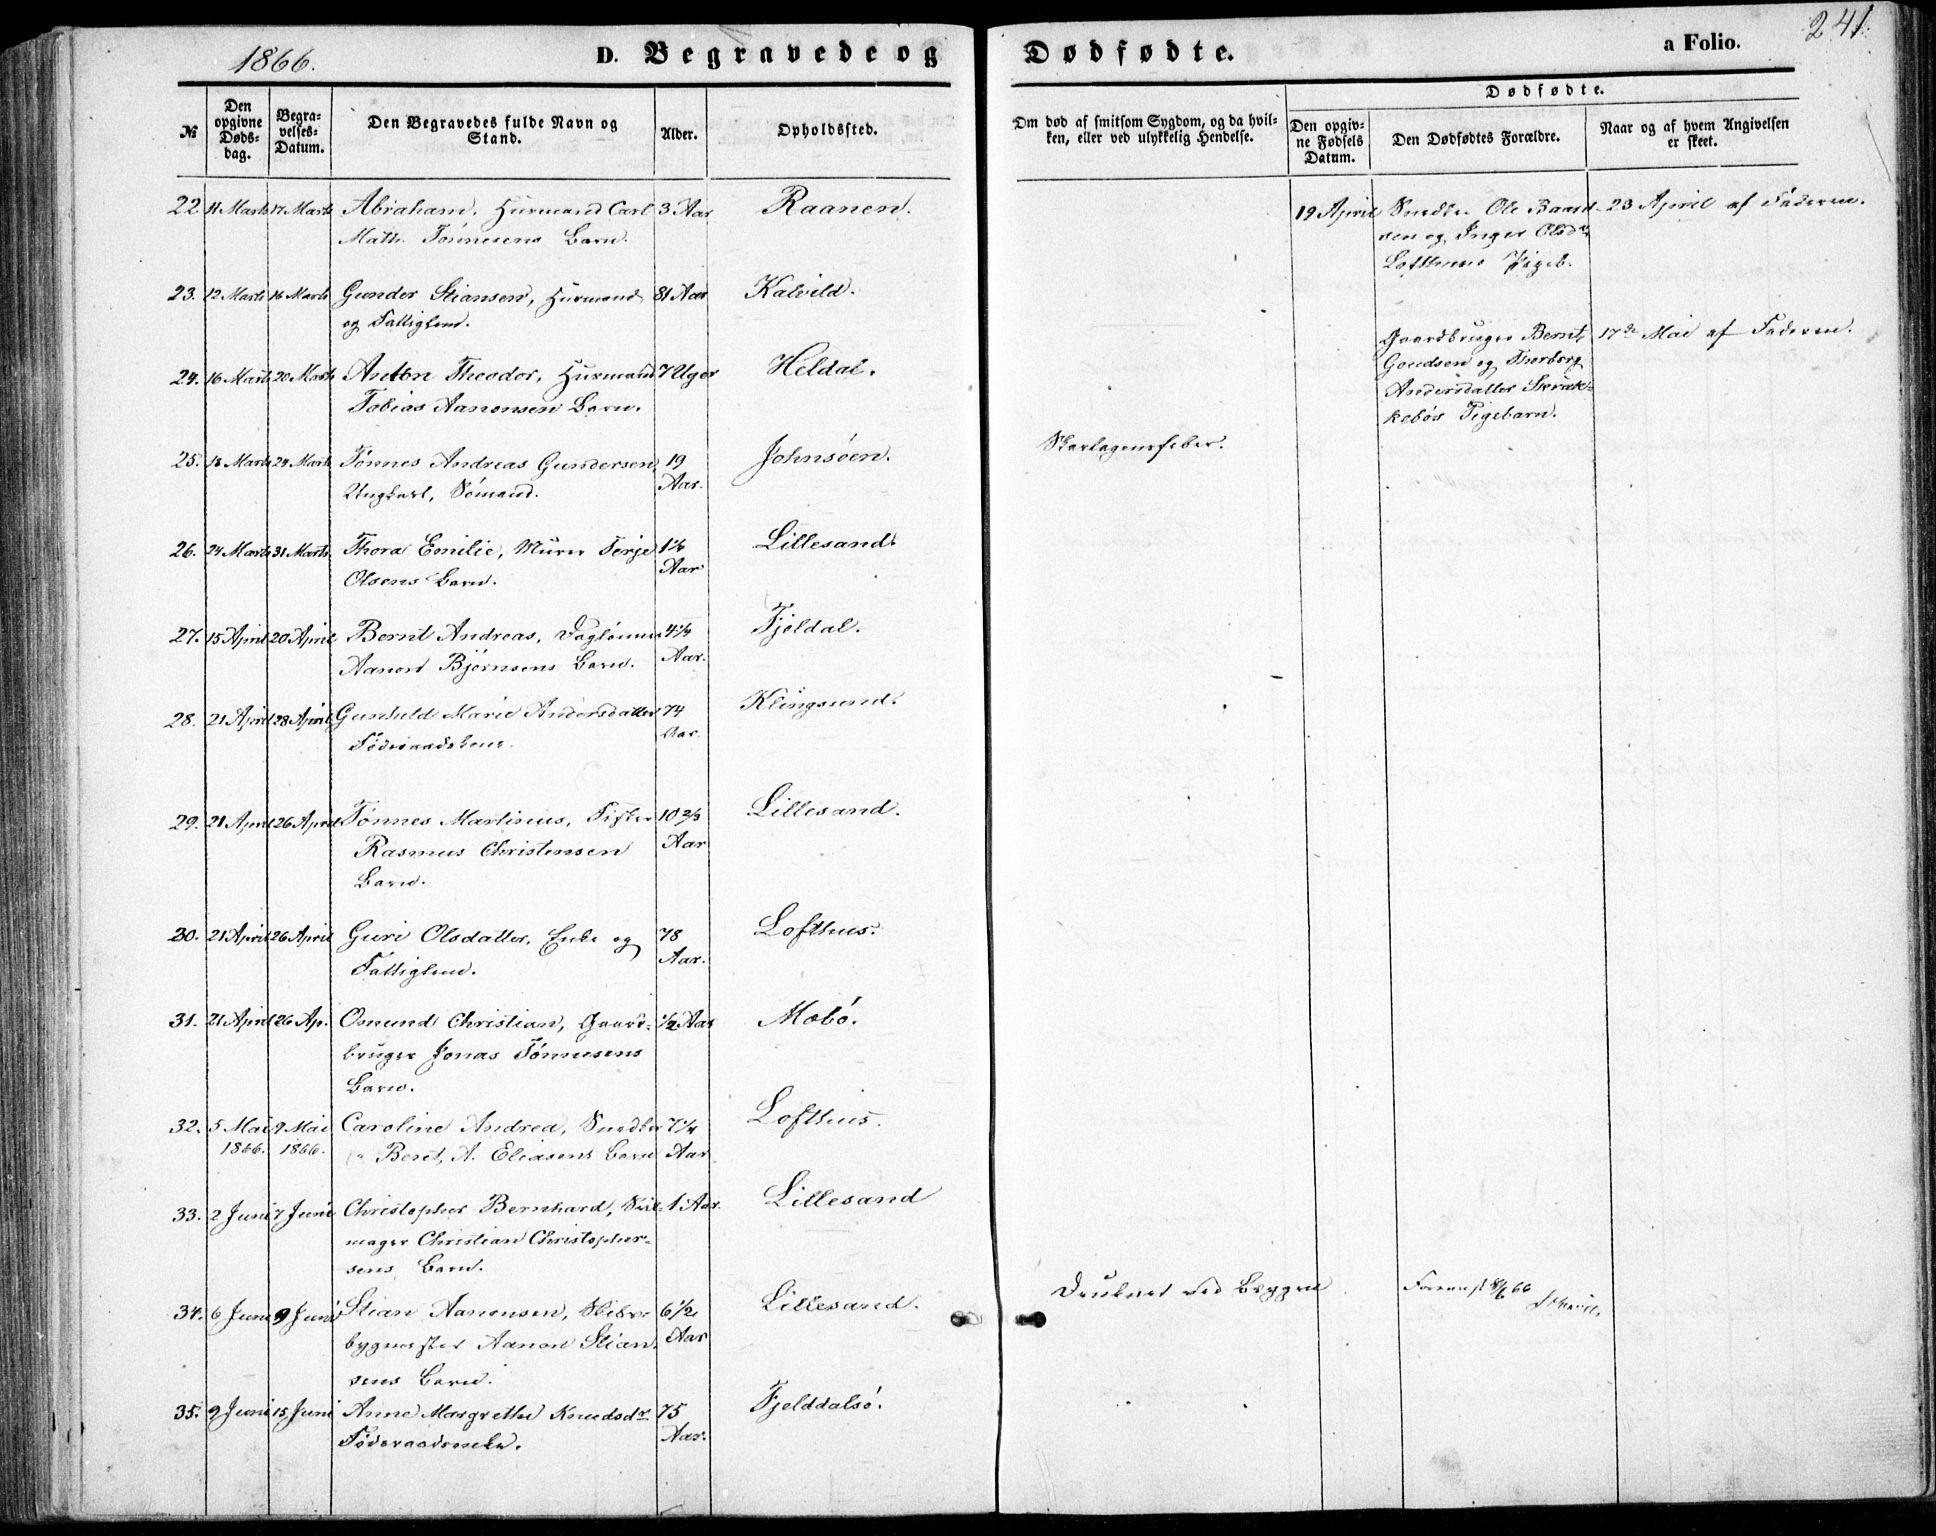 1866.
D. Begravede og Dødfødte.
a Folio.
241.
№
Den opgivne Døds-dag.
Begra-velses-Datum.
Den Begravedes fulde Navn og Stand.
Alder.
Opholdssted.
Om død af smitsom Sygdom, og da hvil-ken, eller ved ulykkelig Hendelse.
Dødfødte.
Den opgiv-ne Fødsels Datum.
Den Dødfødtes Forældre.
Naar og af hvem Angivelsen er skeet.
22. 11 Marts 17 Marts Abraham, Husmand Carl 3 Aar Raanen.
Math. Tønnesens Barn.
19 April Snedker Ole Baard- 23 April af Faderen.
sen og Inger Olsdr
Lofthuus Pigeb.
23. 12 Marts 16 Marts Gunder Stiansen, Husmand 81 Aar Kalvild.
og Fattiglem.
Gaardbruger Bernt 17de Mai af Faderen.
Goudsen og Thorborg
Andersdatter Skrak-
kebøs Pigebarn.
24. 16 Marts 20 Marts Anton Theodor, Husmand 7 Uger Heldal.
Tobias Aanonsen Barn.
25. 18 Marts 24 Marts Tønnes Andreas Gundersen, 19 Johnsøen. Skarlagensfeber.
Ungkarl, Sømand. Aar.
26. 24 Marts 31 Marts Thora Emilie, Murer Terje 1 1/6 Lillesand.
Olsens Barn. Aar
27. 15 April 20 April Bernt Andreas, Daglønner 4 1/4 Fjeldal.
Aanon Bjørnsens Barn. Aar.
28. 21 April 28 April Gunhild Marie Andersdatter 74 Klingsund.
Føderaadskone. Aar.
29. 21 April 26 April Tønnes Martinus, Fisker 10 2/3 Lillesand.
Rasmus Christensen Aar
Barn.
30. 21 April 26 April Guri Olsdatter, Enke og 78 Lofthus.
Fattiglem. Aar.
31. 21 April 26 Ap. Osmund Christian, Gaard- 1/2 Aar Mæbø.
bruger Jonas Tønnesens
Barn.
32. 5 Mai 9 Mai Caroline Andrea, Snedker 7 1/4 Lofthus.
1866. 1866. Beret, A. Eliasens Barn Aar
33. 2 Juni 7 Juni Christopher Bernhard, Seil- 1 Aar. Lillesand
mager Christian Christopher-
sens Barn.
34. 6 Juni 9 Juni Stian Aanonsen, Skibs- 6 1/2 Lillesand. Druknet ved Bryggen
bygmester Aanon Stian- Aar
sens Barn.
35. 9 Juni 15 Juni Anne Margrethe Knudsdr 75 Fjelddalsø.
Føderaadsenke. Aar.